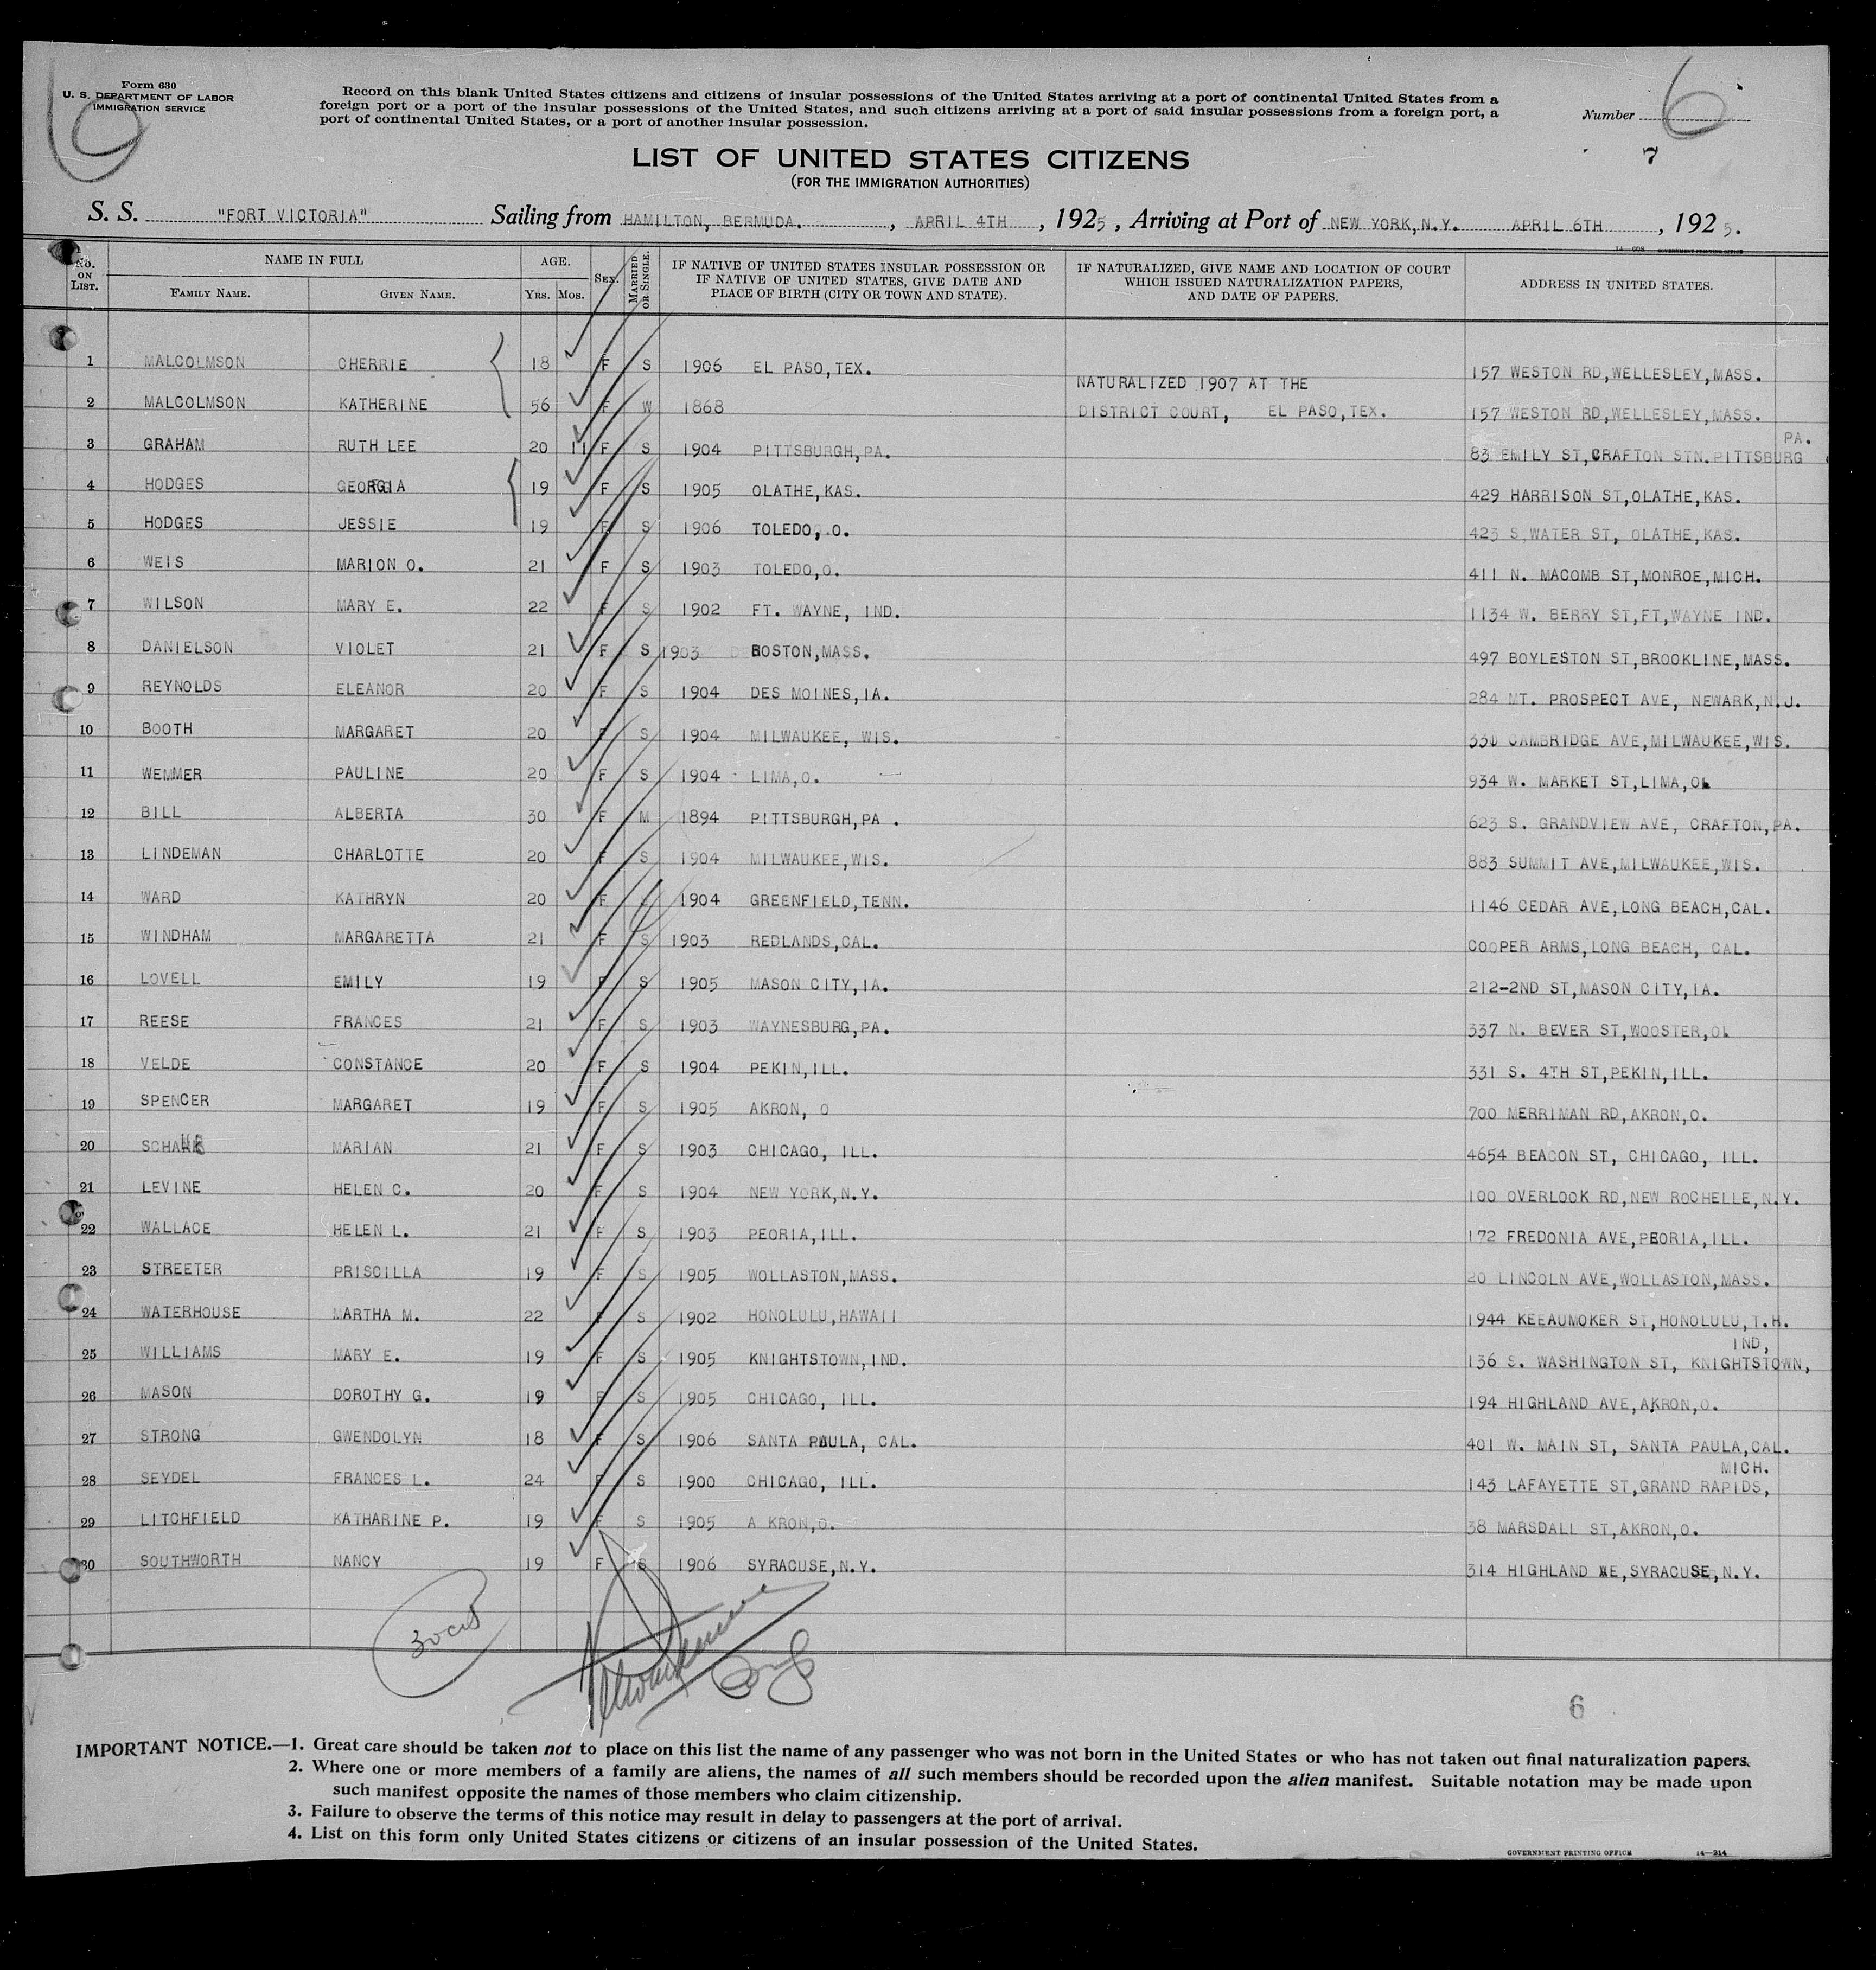 Form 630
U. S. DEPARTMENT OF LABOR
IMMIGRATION SERVICE
Record on this blank United States citizens and citizens of insular possessions of the United States arriving at a port of continental United States from a
foreign port or a port of the insular possessions of the United States, and such citizens arriving at a port of said insular possessions from a foreign port, a
port of continental United States, or a port of another insular possession.
Number 6
6
7
LIST OF UNITED STATES CITIZENS
(FOR THE IMMIGRATION AUTHORITIES)
S. S. "FORT VICTORIA" Sailing from HAMILTON, BERMUDA. , APRIL 4TH , 1925 , Arriving at Port of NEW YORK,N.Y. APRIL 6TH , 1925.
14-608 GOVERNMENT PRINTING OFFICE
No. ON LIST. NAME IN FULL FAMILY NAME. GIVEN NAME. AGE. Yrs. Mos. SEX. MARRIED OR SINGLE. IF NATIVE OF UNITED STATES INSULAR POSSESSION OR IF NATIVE OF UNITED STATES, GIVE DATE AND PLACE OF BIRTH (CITY OR TOWN AND STATE). IF NATURALIZED, GIVE NAME AND LOCATION OF COURT WHICH ISSUED NATURALIZATION PAPERS, AND DATE OF PAPERS. ADDRESS IN UNITED STATES.
1 MALCOLMSON CHERRIE 18 F S 1906 EL PASO,TEX. 157 WESTON RD,WELLESLEY,MASS.
NATURALIZED 1907 AT THE
2 MALCOLMSON KATHERINE 56 F W 1868 DISTRICT COURT, EL PASO,TEX. 157 WESTON RD,WELLESLEY,MASS.
PA.
3 GRAHAM RUTH LEE 20 11 F S 1904 PITTSBURGH,PA. 83 EMILY ST,CRAFTON STN.PITTSBURG
4 HODGES GEORGIA 19 F S 1905 OLATHE,KAS. 429 HARRISON ST,OLATHE,KAS.
5 HODGES JESSIE 19 F S 1906 TOLEDO,.O. 423 S,WATER ST, OLATHE,KAS.
6 WEIS MARION O. 21 F S 1903 TOLEDO,O. 411 N. MACOMB ST,MONROE,MICH.
7 WILSON MARY E. 22 F S 1902 FT. WAYNE, IND. 1134 W. BERRY ST,FT,WAYNE IND.
8 DANIELSON VIOLET 21 F S 1903 BOSTON,MASS. 497 BOYLESTON ST,BROOKLINE,MASS.
9 REYNOLDS ELEANOR 20 F S 1904 DES MOINES,IA. 284 MT. PROSPECT AVE, NEWARK,N.J.
10 BOOTH MARGARET 20 F S 1904 MILWAUKEE, WIS. CAMBRIDGE AVE,MILWAUKEE,WIS.
11 WEMMER PAULINE 20 F S 1904 LIMA,O. 934 W. MARKET ST,LIMA,O.
12 BILL ALBERTA 30 F M 1894 PITTSBURGH,PA . 623 S. GRANDVIEW AVE, CRAFTON,PA.
13 LINDEMAN CHARLOTTE 20 F S 1904 MILWAUKEE,WIS. 883 SUMMIT AVE,MILWAUKEE,WIS.
14 WARD KATHRYN 20 F 1904 GREENFIELD,TENN. 1146 CEDAR AVE,LONG BEACH,CAL.
15 WINDHAM MARGARETTA 21 F S 1903 REDLANDS,CAL. COOPER ARMS,LONG BEACH, CAL.
16 LOVELL EMILY 19 F S 1905 MASON CITY,IA. 212-2ND ST,MASON CITY,IA.
17 REESE FRANCES 21 F S 1903 WAYNESBURG,PA. 337 N. BEVER ST,WOOSTER,O.
18 VELDE CONSTANCE 20 F S 1904 PEKIN,ILL. 331 S. 4TH ST,PEKIN,ILL.
19 SPENCER MARGARET 19 F S 1905 AKRON, O 700 MERRIMAN RD,AKRON,O.
20 MARIAN 21 F S 1903 CHICAGO, ILL. 4654 BEACON ST, CHICAGO, ILL.
21 LEVINE HELEN C. 20 F S 1904 NEW YORK,N.Y. 100 OVERLOOK RD,NEW ROCHELLE,N.Y.
22 WALLACE HELEN L. 21 F S 1903 PEORIA,ILL. 172 FREDONIA AVE,PEORIA,ILL.
23 STREETER PRISCILLA 19 F S 1905 WOLLASTON,MASS. 20 LINCOLN AVE,WOLLASTON,MASS.
24 WATERHOUSE MARTHA M. 22 F S 1902 HONOLULU,HAWAII 1944 KEEAUMOKER ST,HONOLULU,T.H.
IND,
25 WILLIAMS MARY E. 19 F S 1905 KNIGHTSTOWN,IND. 136 S. WASHINGTON ST, KNIGHTSTOWN,
26 MASON DOROTHY G. 19 F S 1905 CHICAGO, ILL. 194 HIGHLAND AVE,AKRON,O.
27 STRONG GWENDOLYN 18 F S 1906 SANTA PAULA, CAL. 401 W. MAIN ST, SANTA PAULA,CAL.
MICH.
28 SEYDEL FRANCES L. 24 F S 1900 CHICAGO, ILL. 143 LAFAYETTE ST,GRAND RAPIDS,
29 LITCHFIELD KATHARINE P. 19 F S 1905 A KRON,O. 38 MARSDALL ST,AKRON,O.
30 SOUTHWORTH NANCY 19 F S 1906 SYRACUSE,N.Y. 314 HIGHLAND AE,SYRACUSE,N.Y.
6
IMPORTANT NOTICE.—1. Great care should be taken not to place on this list the name of any passenger who was not born in the United States or who has not taken out final naturalization papers.
2. Where one or more members of a family are aliens, the names of all such members should be recorded upon the alien manifest. Suitable notation may be made upon
such manifest opposite the names of those members who claim citizenship.
3. Failure to observe the terms of this notice may result in delay to passengers at the port of arrival.
4. List on this form only United States citizens or citizens of an insular possession of the United States.
GOVERNMENT PRINTING OFFICE 14-214